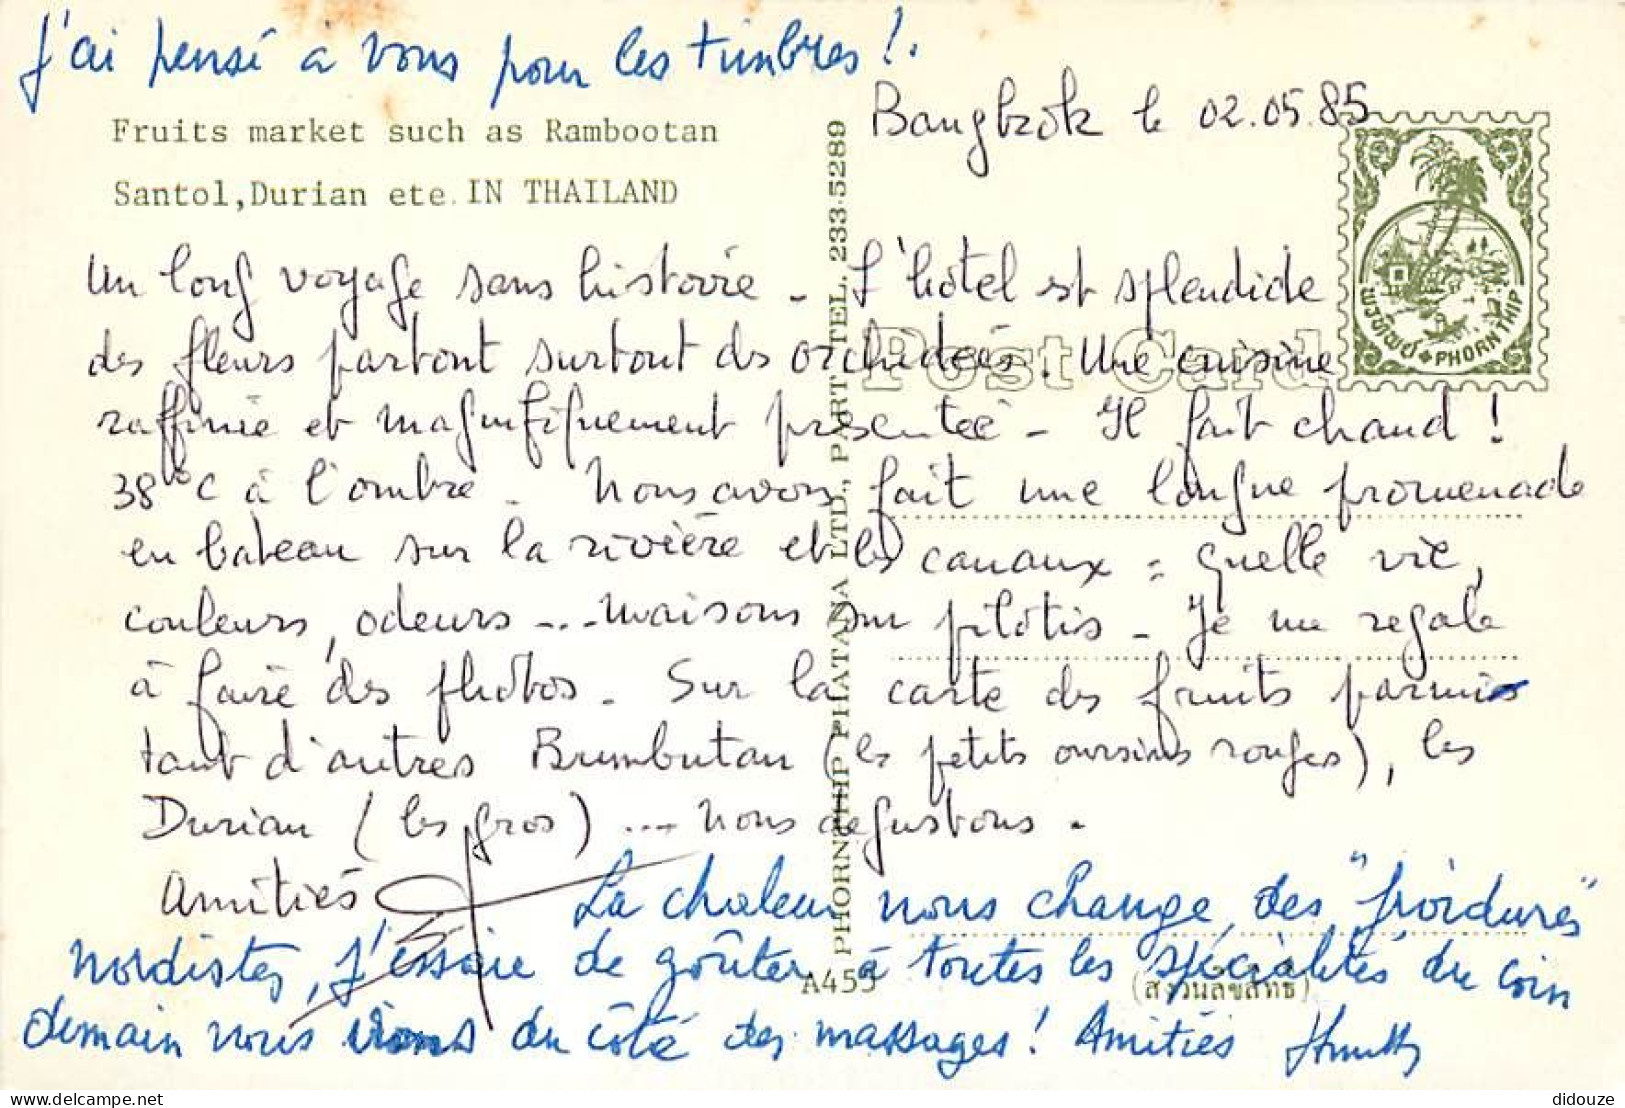 J'ai pensé à vous pour les timbres !.
Bangkok le 02.05.85
Fruits market such as Rambootan
Santol,Durian ete IN THAILAND
Un long voyage sans histoire - L'hôtel est splendide
des fleurs partout surtout des orchidées. Une cuisine
raffinée et magnifiquement présentée - Il fait chaud !
38°C à l'ombre - Nous avons fait une longue promenade
en bateau sur la rivière et les canaux = quelle vie,
couleurs, odeurs --- maisons sur pilotis - Je me régale
à faire des photos - Sur la carte des fruits parmis
tant d'autres Brumbutan (les petits oursins rouges), les
Durian (les gros) .... nous dégustons -
Amitiés
La chaleur nous change des "froidures"
nordistes, j'essaie de goûter à toutes les spécialités du coin
demain nous irons du côté des massages ! Amitiés
Post Card
พรทิพย์ PHORN THIP
PHORNTHIP PHATANA LTD., PART TEL. 233-5289
A455
(สงวนลิขสิทธิ์)
didouze